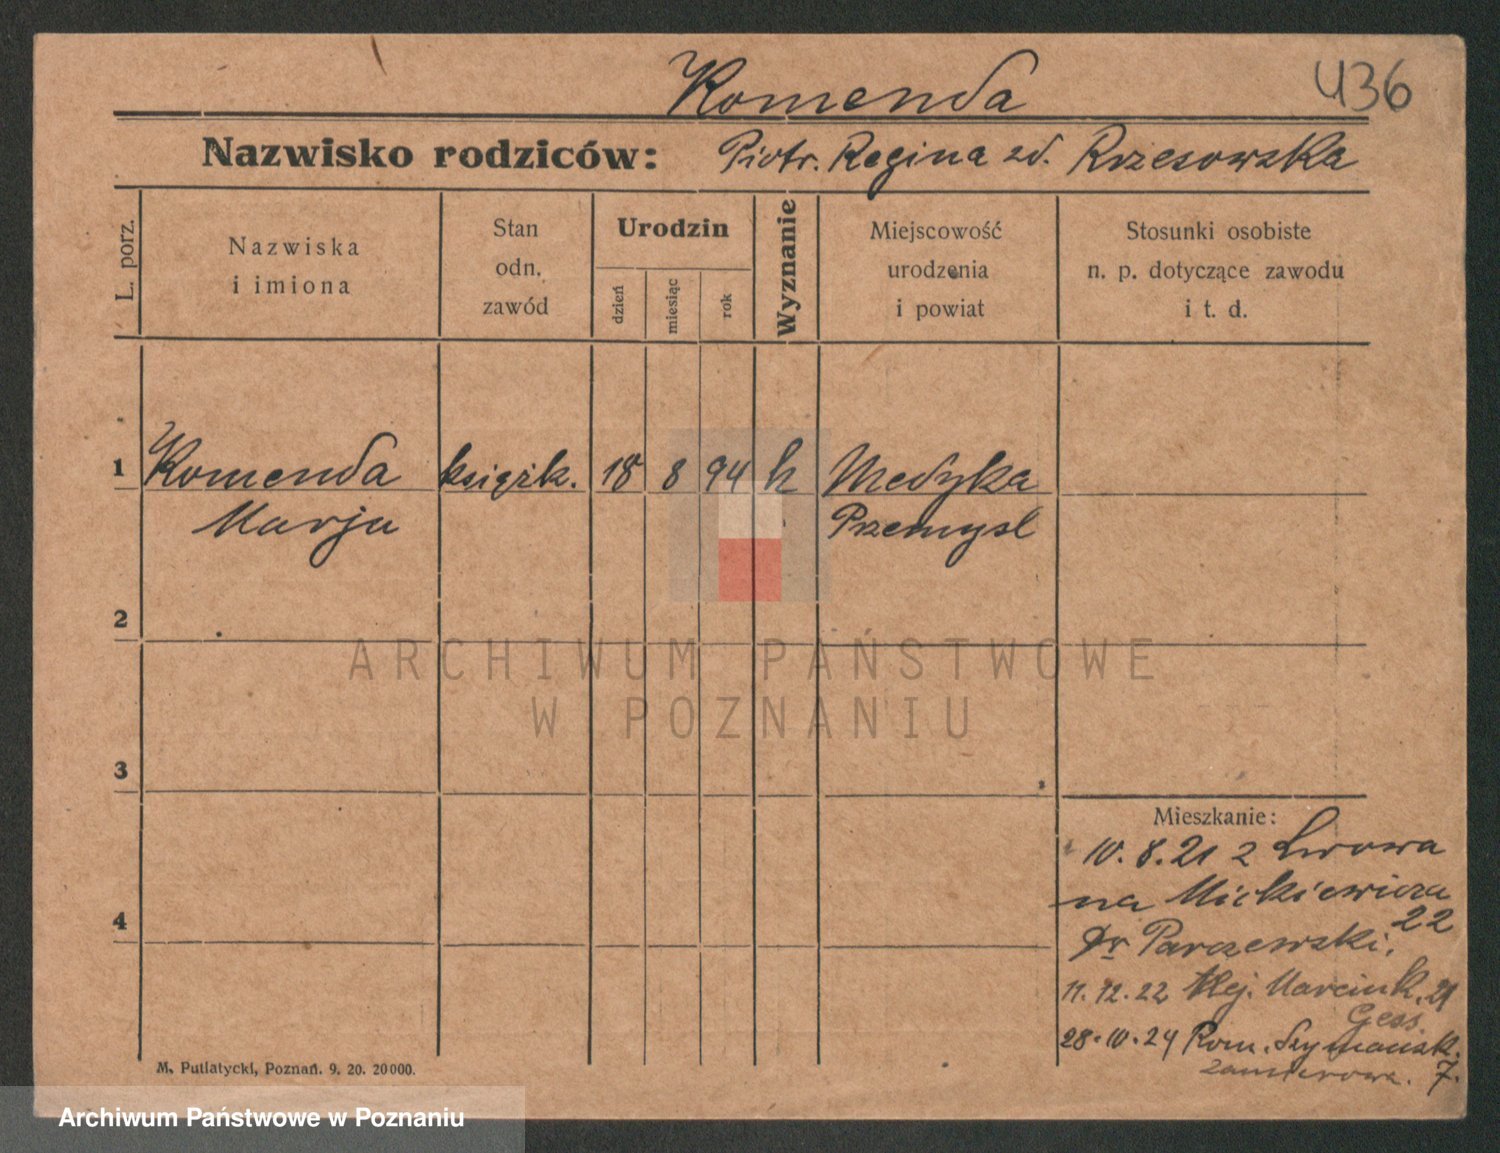 Komenda
436
Nazwisko rodziców: Piotr. Regina zd. Rzesowska
L. porz.
Nazwiska
i imiona
Stan
odn.
zawód
Urodzin
dzień
miesiąc
rok
Wyznanie
Miejscowość
urodzenia
i powiat
Stosunki osobiste
n. p. dotyczące zawodu
i t. d.
1 Komenda książk. 18 8 94 k Medyka
Marja Przemysl
2
ARCHIWUM PAŃSTWOWE
W POZNANIU
3
Mieszkanie:
10.8.21 z Lwowa
na Mickiewicza
22
Dr Parczewski.
11.12.22 Alej. Marcink. 21
Gess.
28.10.24 Rom. Szymańsk.
7.
4
M. Putiatycki, Poznań. 9. 20. 20000.
Archiwum Państwowe w Poznaniu